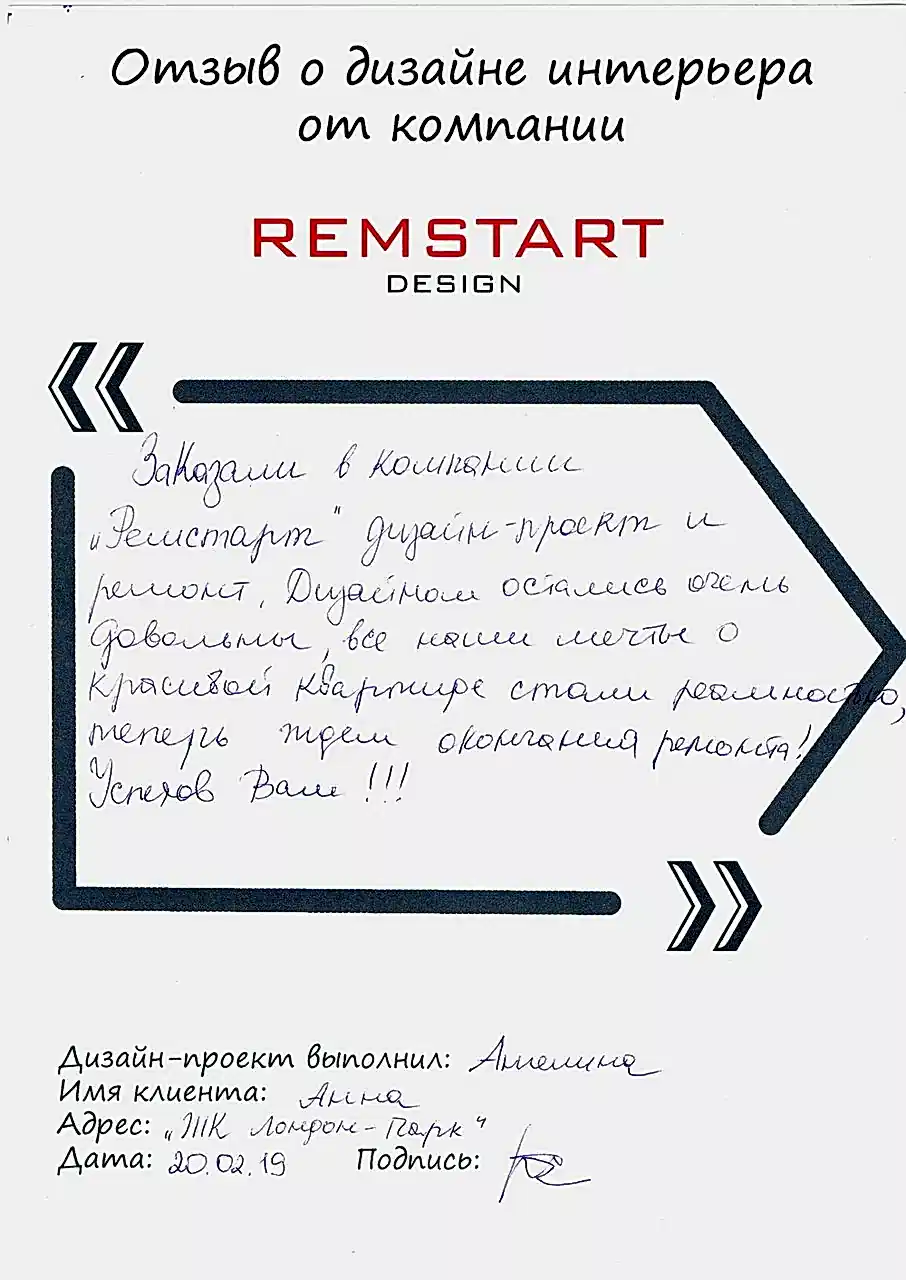 Отзыв о дизайне интерьера
от компании
REMSTART
DESIGN
Заказали в компании
„Ремстарт" дизайн-проект и
ремонт. Дизайном остались очень
довольны, все наши мечты о
красивой квартире стали реальностью,
теперь ждем окончания ремонта!
Успехов Вам!!!
Дизайн-проект выполнил: Амелина
Имя клиента: Анна
Адрес: „ЖК Лондон-Парк"
Дата: 20.02.19 Подпись: